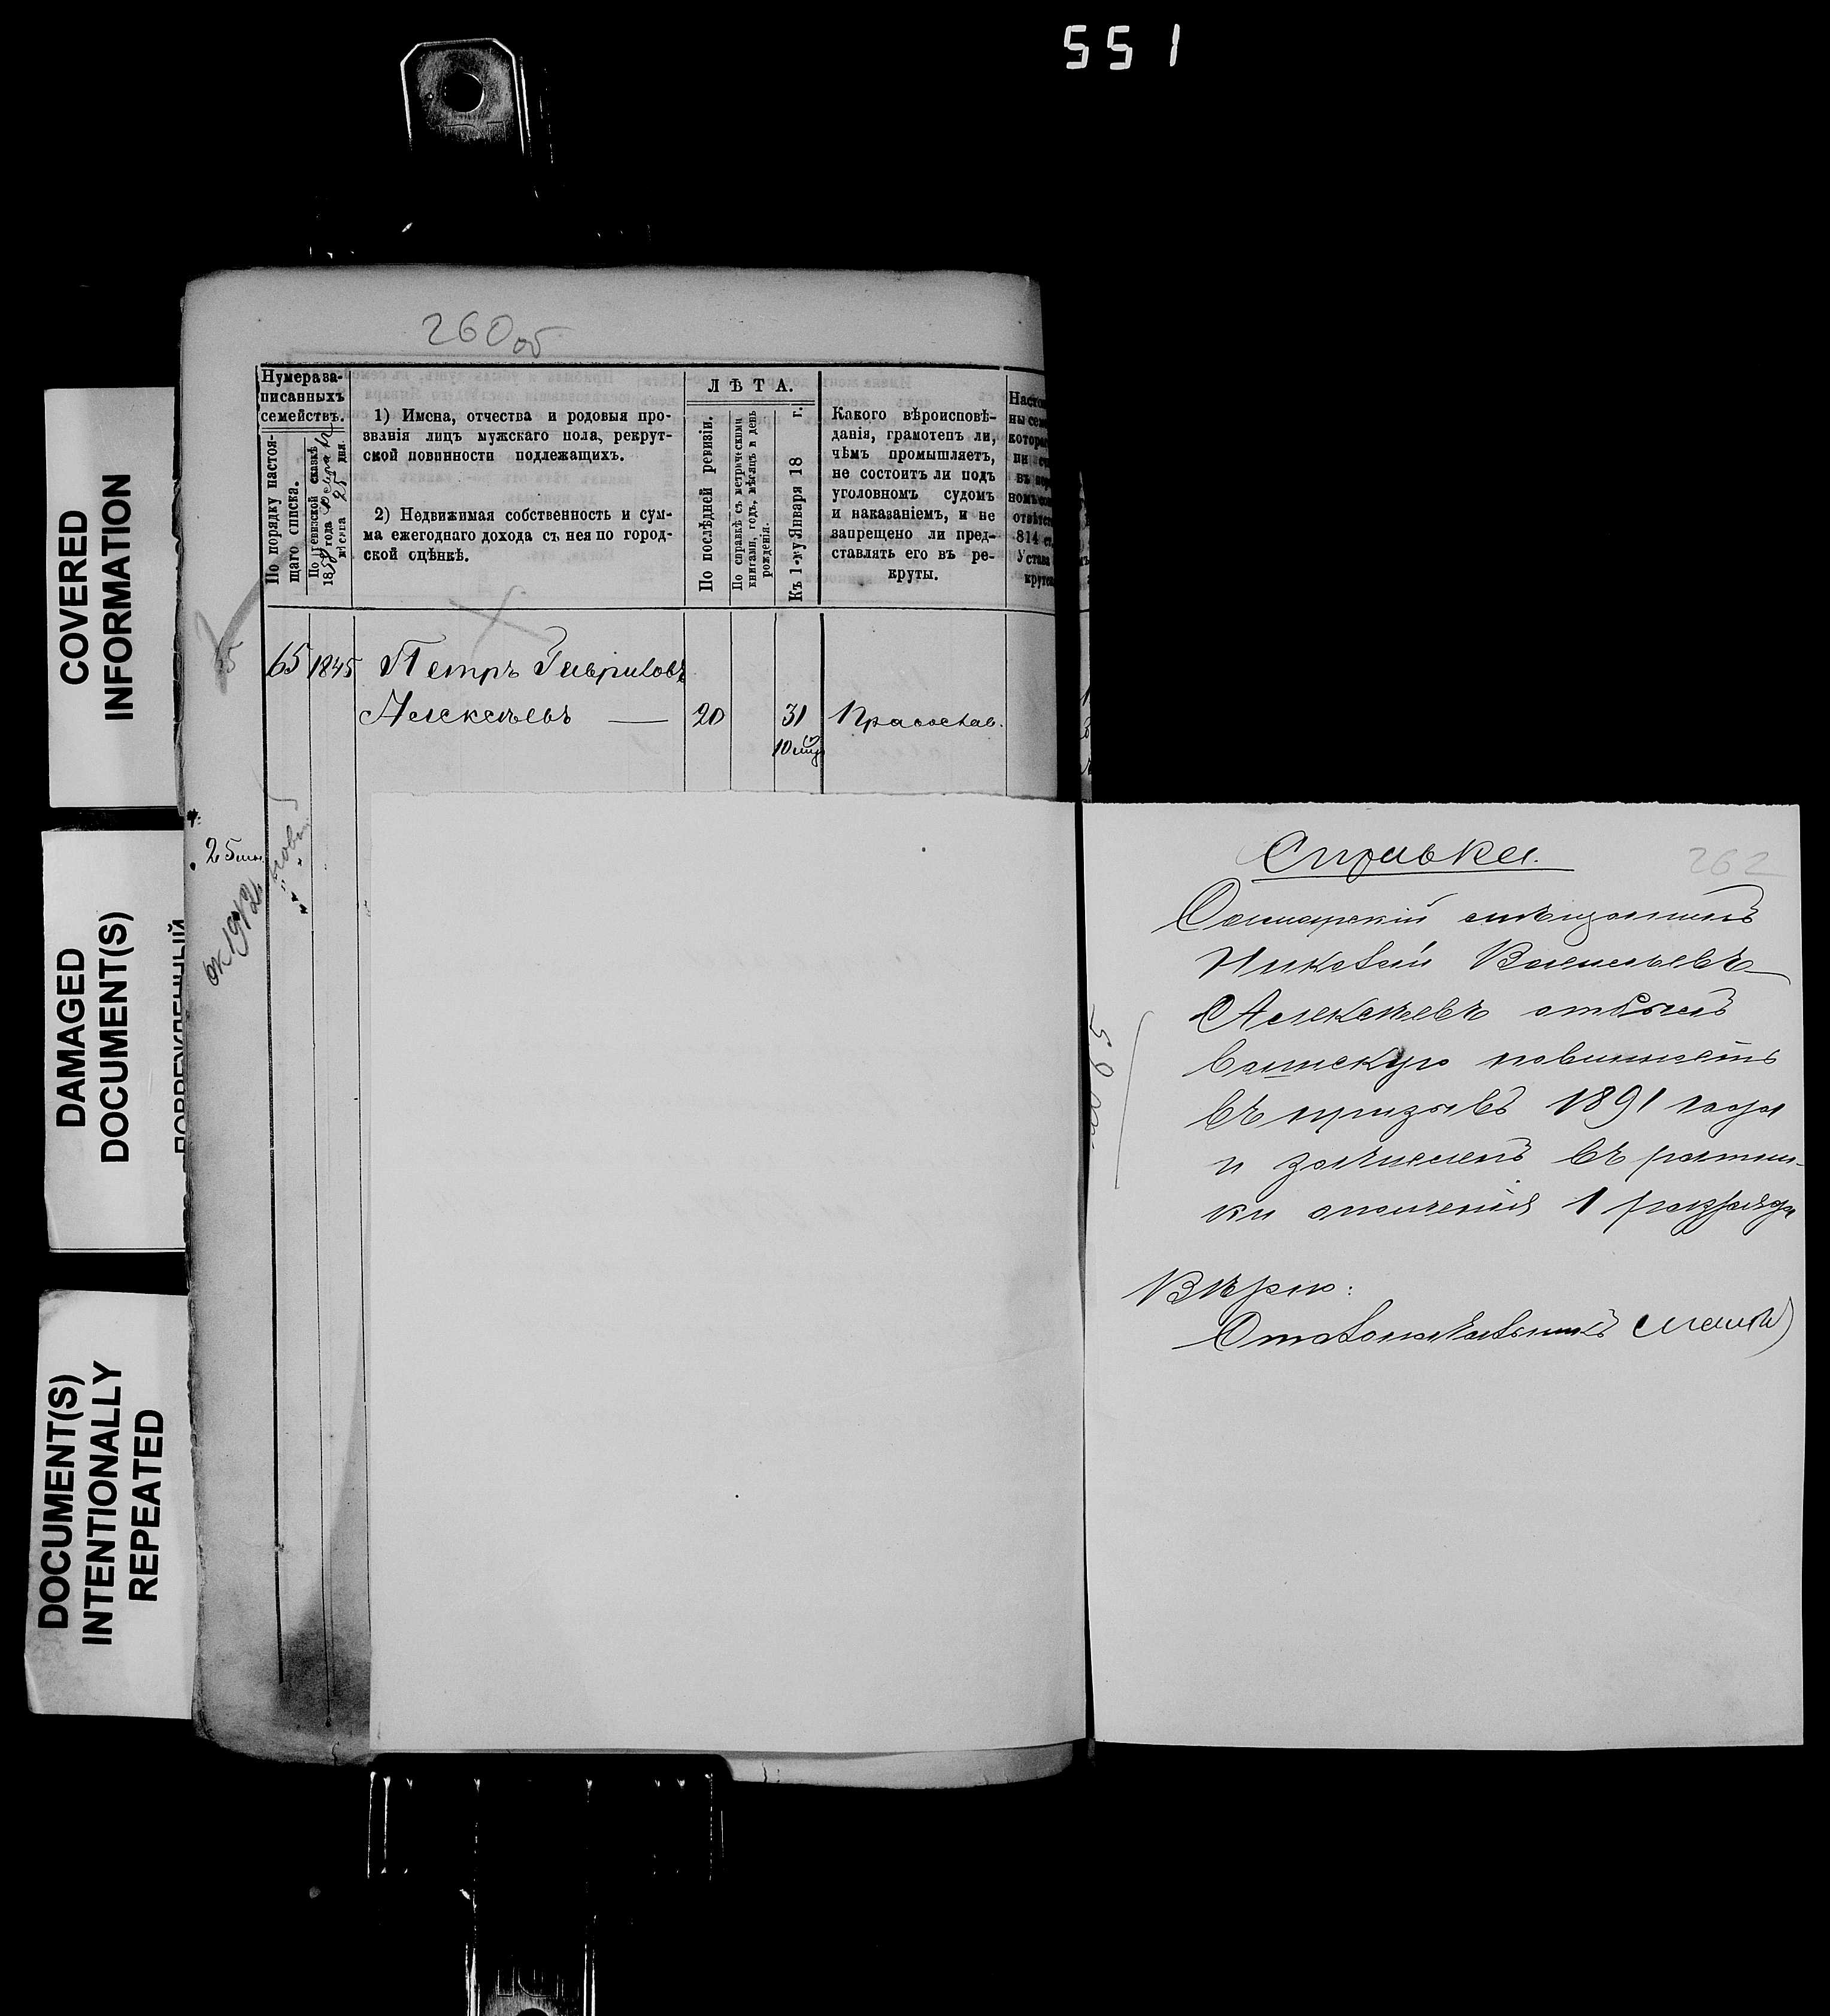 551
COVERED
INFORMATION
DAMAGED
DOCUMENT(S)
DOCUMENT(S)
INTENTIONALLY
REPEATED
260 об
Нумера за-
писанныхъ
семействъ.
По порядку настоя-
щаго списка.
По ревизской сказкѣ
18 года
мѣсяца 25 дня.
1) Имена, отчества и родовыя про-
званія лицъ мужскаго пола, рекрут-
ской повинности подлежащихъ.
2) Недвижимая собственность и сум-
ма ежегоднаго дохода съ нея по город-
ской оцѣнкѣ.
ЛѢТА.
По послѣдней ревизіи.
По справкѣ съ метрическими
книгами, годъ, мѣсяцъ и день
рожденія.
Къ 1-му Января 18 г.
Какого вѣроисповѣ-
данія, грамотенъ ли,
чѣмъ промышляетъ,
не состоитъ ли подъ
уголовномъ судомъ
и наказаніемъ, и не
запрещено ли пред-
ставлять его въ ре-
круты.
814
65 1845 Петръ Гавриловъ
Алексѣевъ — 20 31 Православ.
Справка.
262
Самарскій мѣщанинъ
Николай Васильевъ
Алексѣевъ отбылъ
воинскую повинность
въ призывъ 1891 года
и зачисленъ въ ратни-
ки ополченія 1 разряда
Вѣрно:
Столоначальникъ